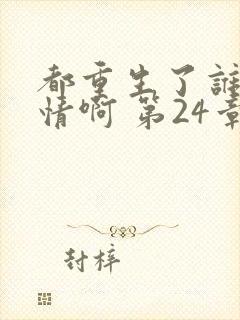 都重生了誰
情啊 第24章
封梓